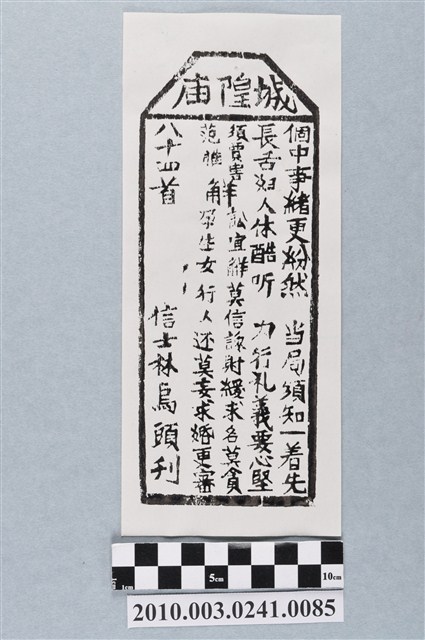 城隍庙
個中事緒更紛然 当局須知一着先
長舌妇人休酷听 力行礼義要心堅
須賈害 訟宜解莫信 財緩求名莫貪
范雎 解 孕生女行人还莫妄求婚更審
八十四首 信士林烏頭刋
1cm 5cm 10cm
2010.003.0241.0085